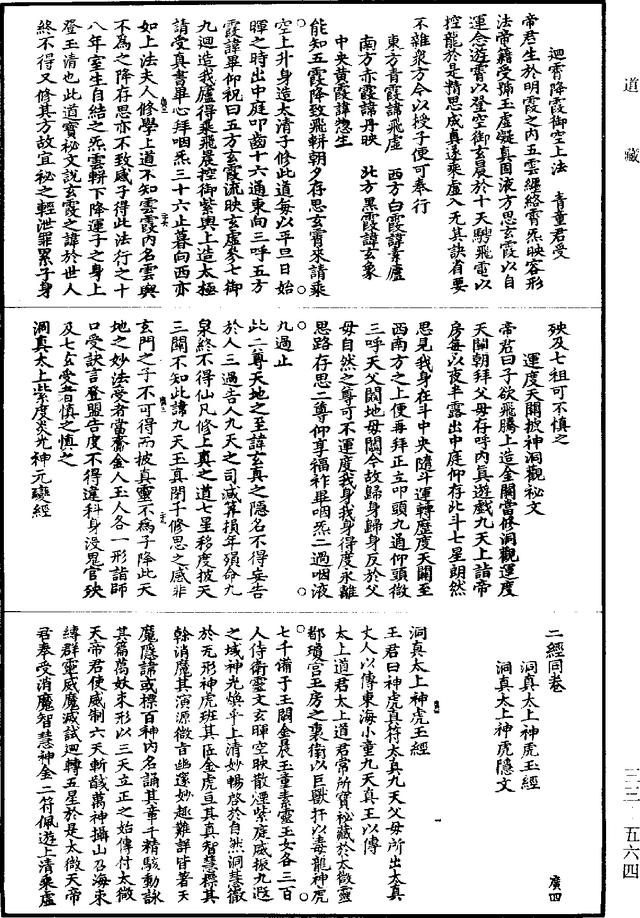 道藏
迴霄降霞御空上法　青童君受
帝君生於明霞之內五雲纏絡霄炁映容形
法帝籍受號玉虛凝真固液方思玄霞以自
運念遊霄以登空御玄晨於十天騁飛電以
控龍於是精思成真遂乘虛入无其訣省要
不雜衆方今以授子便可奉行
東方青霞諱飛虛　西方白霞諱素廬
南方赤霞諱丹映　北方黑霞諱玄象
中央黃霞諱惣生
能知五霞降致飛軿朝夕存思玄霄來請乘
空上升身造太清子修此道每以平旦日始
暉之時出中庭叩齒十六通東向三呼五方
霞諱畢仰祝曰五方玄霞流映玄虛參七御
九迴造我廬得乘飛晨控御紫輿上造太極
請受真書畢心拜咽炁三十六止暮向西亦
如上法夫人修學上道不知雲霞內名雲輿
不為之降存思亦不致感子得此法行之十
八年室生自結之炁雲軿下降運子之身上
登玉清也此道寶秘文說玄霞之諱於世人
終不得又修其方故宜秘之輕泄罪累子身
殃及七祖可不慎之
運度天關披神洞觀秘文
帝君曰子欲飛騰上造金闕當修洞觀運度
天關朝拜父母存呼內真遊戲九天上詣帝
房每以夜半露出中庭仰存北斗七星朗然
思見我身在斗中央隨斗運轉歷度天關至
西南方之上便再拜正立叩頭九通仰頭微
三呼天父闕地母闕今故歸身歸身反於父
母自然之尊可不運度我身我身得度永離
思路存思二尊仰享福祚畢咽炁二過咽液
九過止
此二尊天地之至諱玄真之隱名不得妄告
於人三過告人九天之司減筭損年殞命九
泉終不得仙凡修上真之道七星移度披天
三關不知此諱九天玉真閉子修思之感非
玄門之子不可得而披真靈不為子降此天
地之妙法受者當齋金人玉人各一形詣師
口受訣言登盟告度不得違科身沒鬼官殃
及七玄受者慎之慎之
洞真太上紫度炎光神元變經
二經同卷
洞真太上神虎玉經
洞真太上神虎隱文
洞真太上神虎玉經
王君曰神虎真符太真九天父母所出太真
丈人以傳東海小童九天真王以傳
太上道君太上道君常所寶秘藏於太微靈
都瓊宮玉房之裏衛以巨獸扞以毒龍神虎
七千備于玉闕金晨玉童素靈玉女各三百
人侍衛靈文玄暉空映散煙紫庭威振九遐
之域神光煥乎上清妙暢啓於自然洞慧徹
於无形神虎班其匠金虎亘其真智慧標其
幹消魔其演源微音幽邃妙趣難詳皆著天
魔隱諱或標百神內名誦其章千精駭動詠
其篇萬妖束形以三天立正之始傳付太微
天帝君使威制六天斬馘萬神攝山召海束
縛群靈威魔滅試迴轉五星於是太微天帝
君奉受消魔智慧神金二符佩遊上清乘虛
廣四
三三　五六四